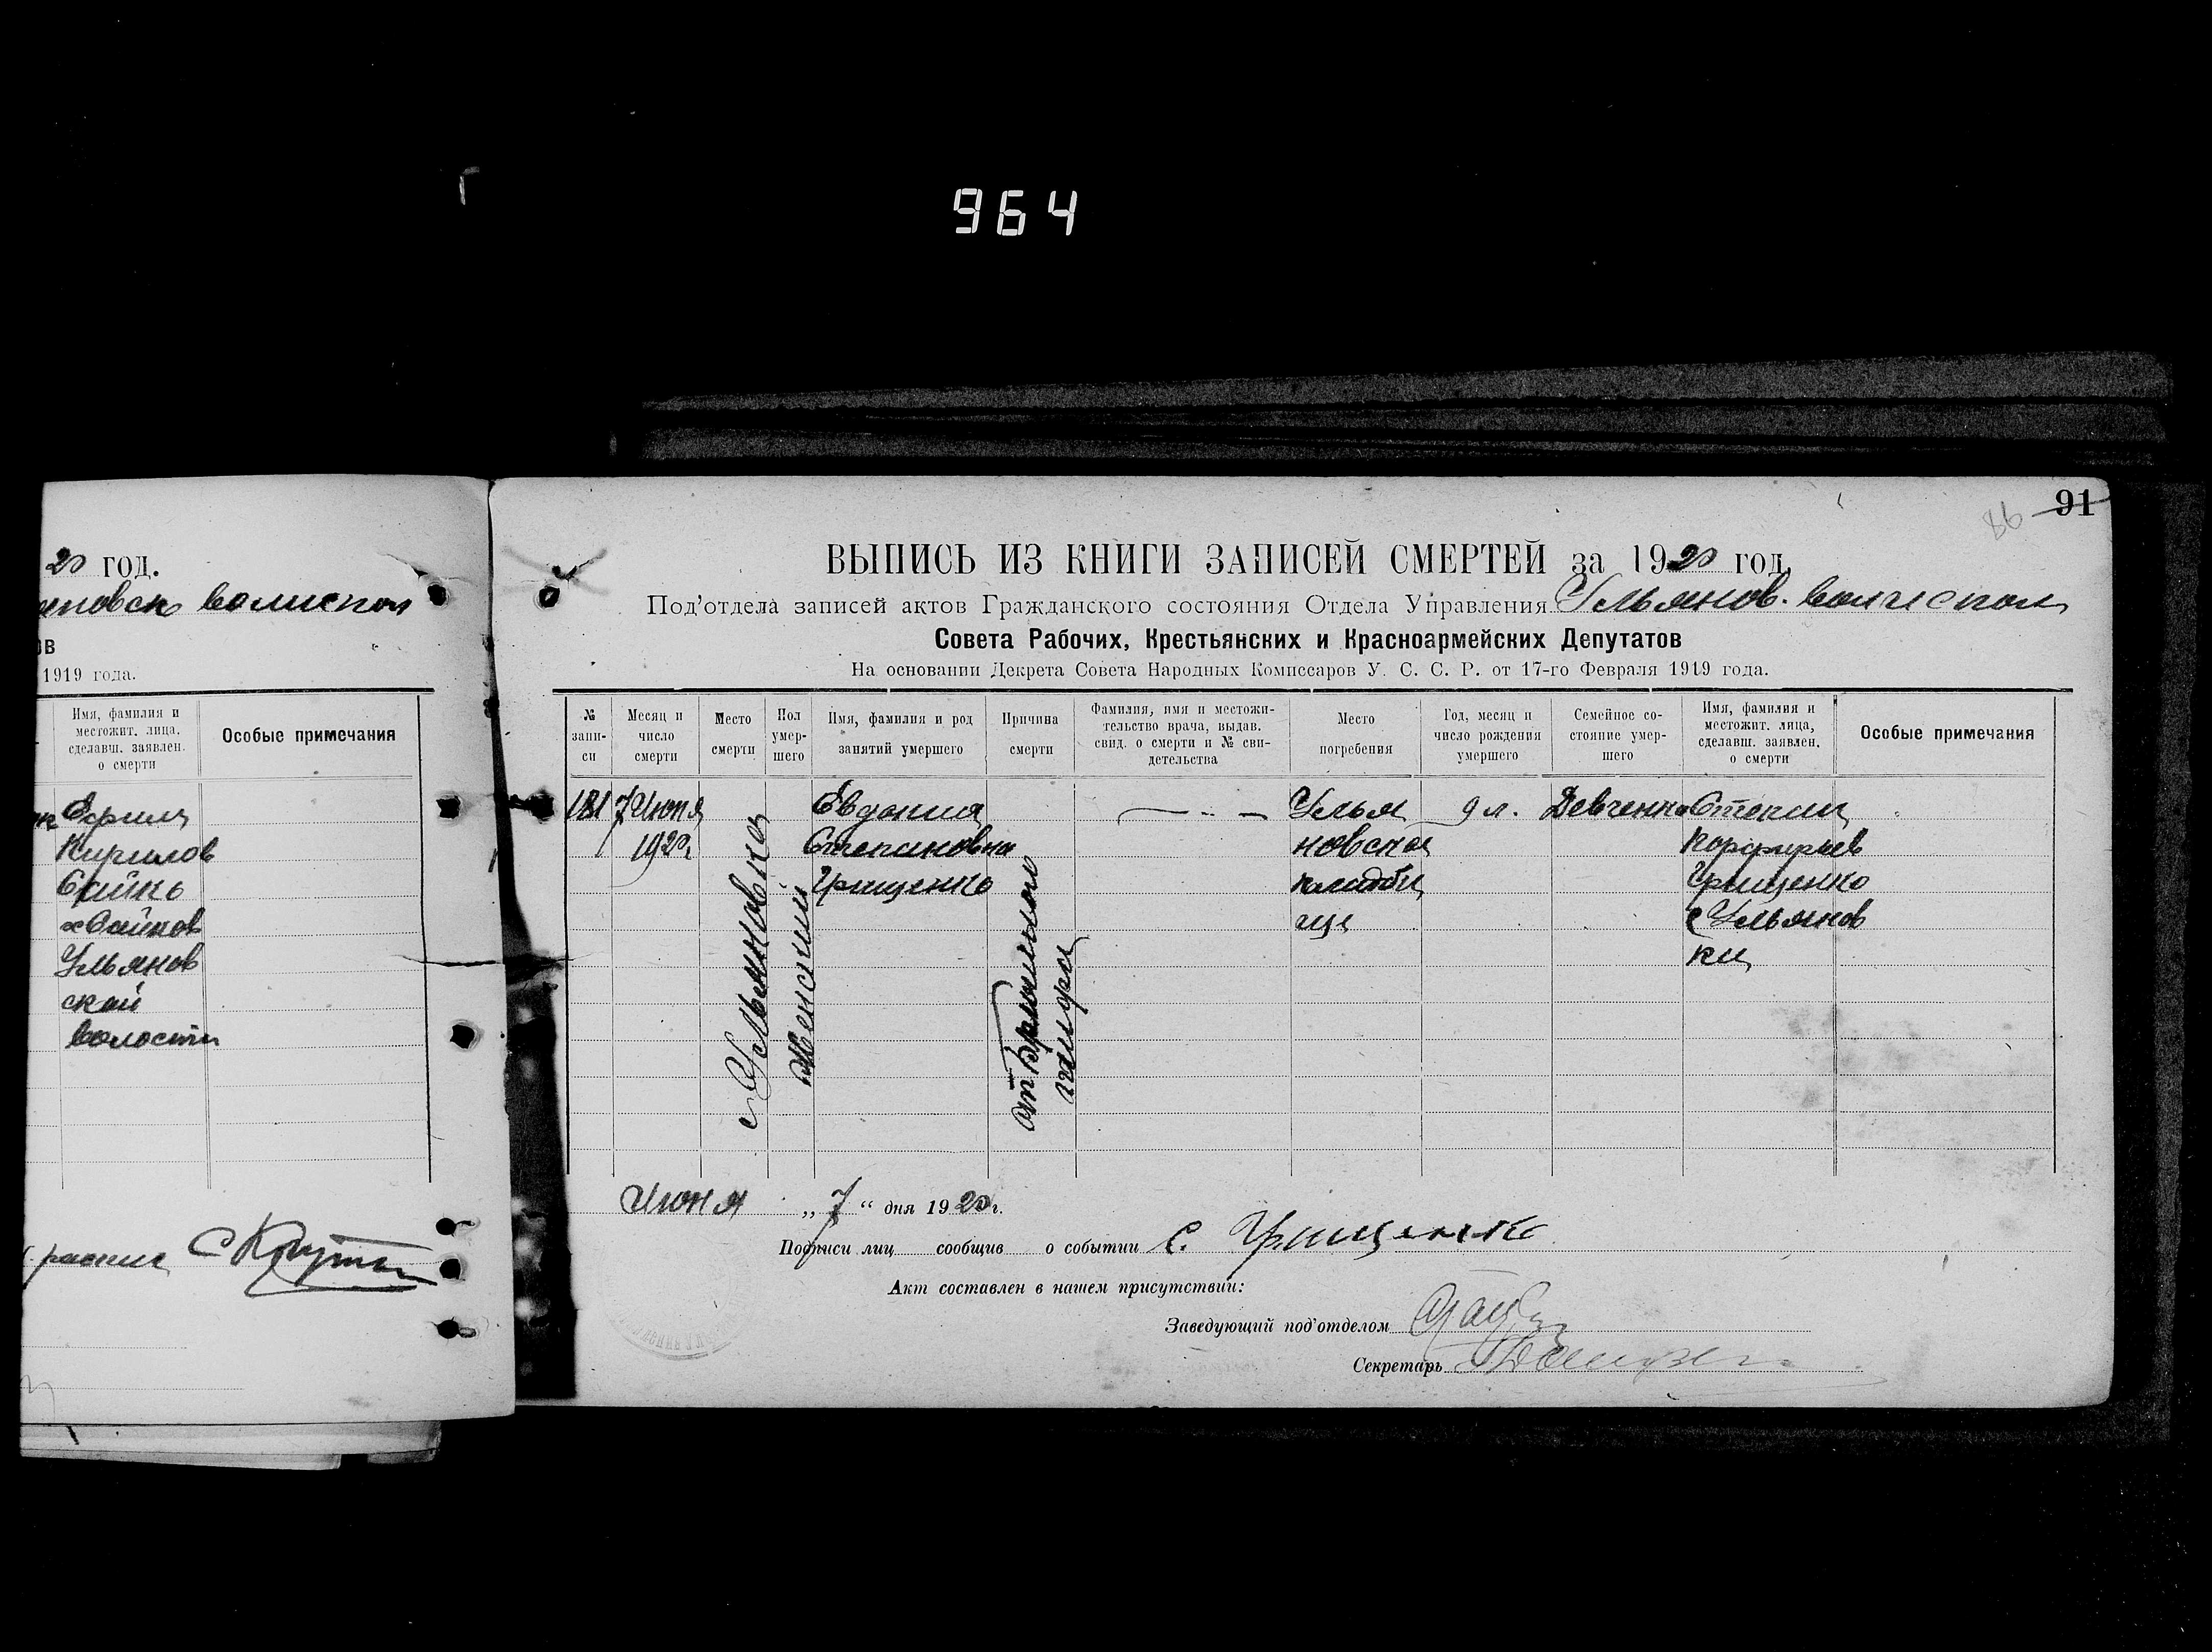 964
20 год.
новск волиспол
ов
1919 года.
Имя, фамилия и
местожит. лица,
сделавш. заявлен.
о смерти
Особые примечания
Ефим
Кирилов
Сайко
х Сайков
Ульянов
ской
волости
86 91
ВЫПИСЬ ИЗ КНИГИ ЗАПИСЕЙ СМЕРТЕЙ за 1920 год.
Под'отдела записей актов Гражданского состояния Отдела Управления Ульянов. волисполк
Совета Рабочих, Крестьянских и Красноармейских Депутатов
На основании Декрета Совета Народных Комиссаров У. С. С. Р. от 17-го Февраля 1919 года.
№ запи-си
Месяц и число смерти
Место смерти
Пол умер-шего
Имя, фамилия и род занятий умершего
Причина смерти
Фамилия, имя и местожи-тельство врача, выдав. свид. о смерти и № сви-детельства
Место погребения
Год, месяц и число рождения умершего
Семейное со-стояние умер-шего
Имя, фамилия и местожит. лица, сделавш. заявлен. о смерти
Особые примечания
181
7 Июня
1920 г
с Ульяновка
Женский
Евдокия
Степановна
Грищенко
от брюшного
тифа
— .. —
Улья
новское
кладби
ще
9 л.
Девченка
Степан
Порфирьев
Грищенко
с Ульянов
ки
Июня „7“ дня 1920 г.
Подписи лиц сообщив о событии С. Грищенко
Акт составлен в нашем присутствии:
Заведующий под'отделом
Секретарь